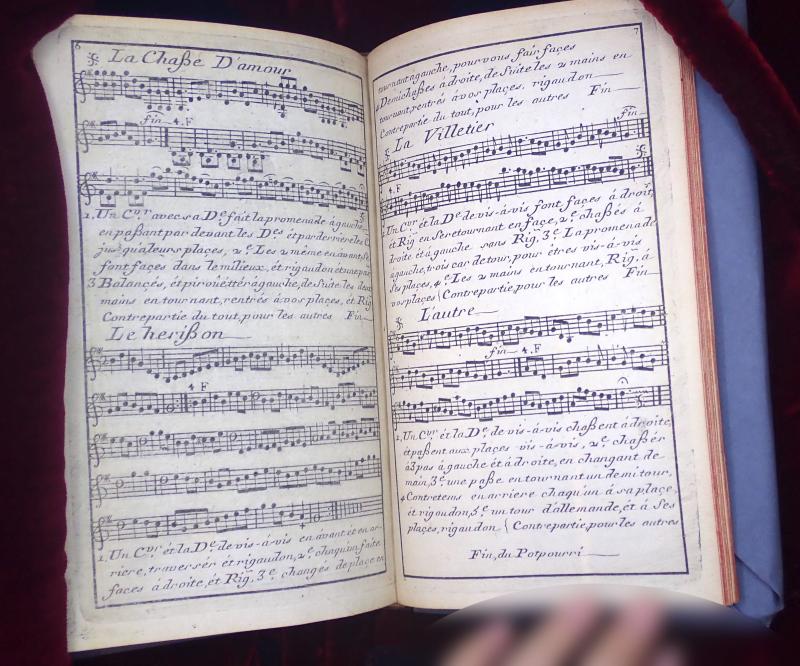 6
La Chaße D'amour
fin 4. F
1. Un Cvr. avec sa De. fait la promenade à gauche,
en paßant par devant les Des. et par derriere les C
jusqu'à leurs places, 2e. Les 2 même en avant &
font façes dans le milieux, et rigaudon et une par
3 Balançés, et pirouëtter à gauche, de Suite les deux
mains en tournant, rentrés à vos plaçes, et Rig
Contrepartie du tout, pour les autres Fin
Le herißon
4 F
1. Un Cvr. ét la De. de vis-à-vis en avant ét en ar-
riere, traversér ét rigaudon, 2e. chaqu'un faite
façes à droite, ét Rig, 3e. changés de plaçe en
7
tournant à gauche, pour vous fair façes
4 Demichaßes à droite, de Suite les 2 mains en
tournant, rentrés à vos plaçes, rigaudon
Contrepartie du tout, pour les autres Fin
La Villetier
fin
4. F
1. Un Cvr. ét la De. de vis-à-vis font façes á droit,
ét Rig en Se retournant en façe, 2e. chaßés á
droite ét á gauche sans Rig, 3e. La promenade
agauche, trois car de tour, pour êtres vis-á-vis
Ses plaçes, 4e. Les 2 mains en tournant, Rig, á
vos plaçes ( Contrepartie, pour les autres Fin
L'autre
fin 4. F
1. Un Cvr. ét la De. de vis-á-vis chaßent á droite,
ét paßent aux plaçes vis-á-vis, 2e. chaßér
á 3 pas á gauche ét á droite, en changant de
main, 3e. une paße en tournant un demi tour,
4 Contretems en arriere chaqu'un á sa plaçe,
ét rigaudon, 5e. un tour d'allemande, ét á Ses
plaçes, rigaudon ( Contrepartie, pour les autres
Fin, du Potpourri